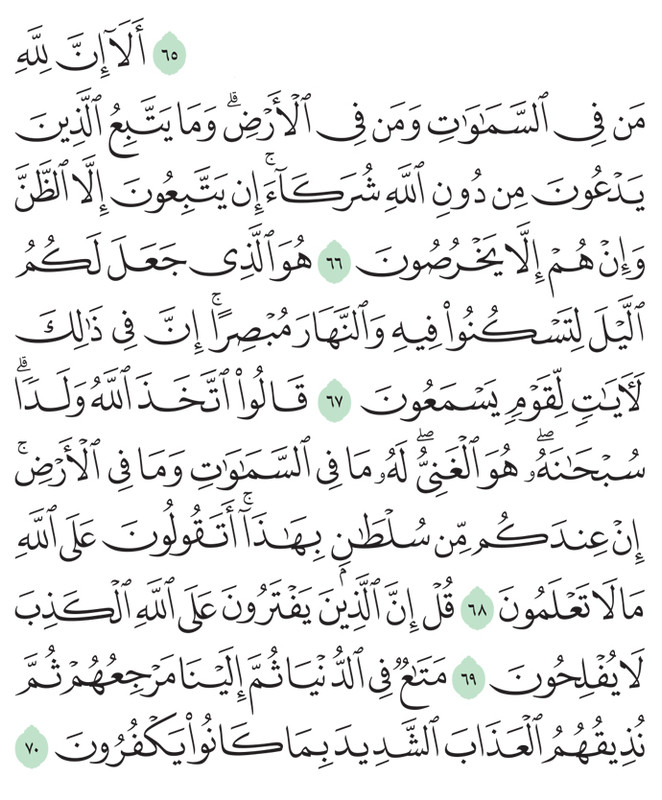 ٦٥ أَلَآ إِنَّ لِلَّهِ
مَن فِى ٱلسَّمَٰوَٰتِ وَمَن فِى ٱلْأَرْضِ ۗ وَمَا يَتَّبِعُ ٱلَّذِينَ
يَدْعُونَ مِن دُونِ ٱللَّهِ شُرَكَآءَ ۚ إِن يَتَّبِعُونَ إِلَّا ٱلظَّنَّ
وَإِنْ هُمْ إِلَّا يَخْرُصُونَ ٦٦ هُوَ ٱلَّذِى جَعَلَ لَكُمُ
ٱلَّيْلَ لِتَسْكُنُوا۟ فِيهِ وَٱلنَّهَارَ مُبْصِرًا ۚ إِنَّ فِى ذَٰلِكَ
لَءَايَٰتٍ لِّقَوْمٍ يَسْمَعُونَ ٦٧ قَالُوا۟ ٱتَّخَذَ ٱللَّهُ وَلَدًا ۗ
سُبْحَٰنَهُۥ ۖ هُوَ ٱلْغَنِىُّ ۖ لَهُۥ مَا فِى ٱلسَّمَٰوَٰتِ وَمَا فِى ٱلْأَرْضِ ۚ
إِنْ عِندَكُم مِّن سُلْطَٰنٍۭ بِهَٰذَآ ۚ أَتَقُولُونَ عَلَى ٱللَّهِ
مَا لَا تَعْلَمُونَ ٦٨ قُلْ إِنَّ ٱلَّذِينَ يَفْتَرُونَ عَلَى ٱللَّهِ ٱلْكَذِبَ
لَا يُفْلِحُونَ ٦٩ مَتَٰعٌ فِى ٱلدُّنْيَا ثُمَّ إِلَيْنَا مَرْجِعُهُمْ ثُمَّ
نُذِيقُهُمُ ٱلْعَذَابَ ٱلشَّدِيدَ بِمَا كَانُوا۟ يَكْفُرُونَ ٧٠